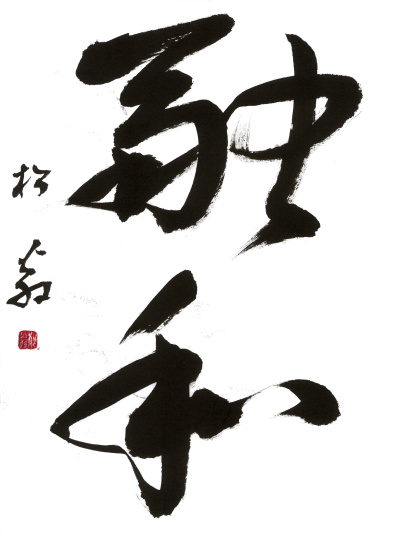 融和
松翁